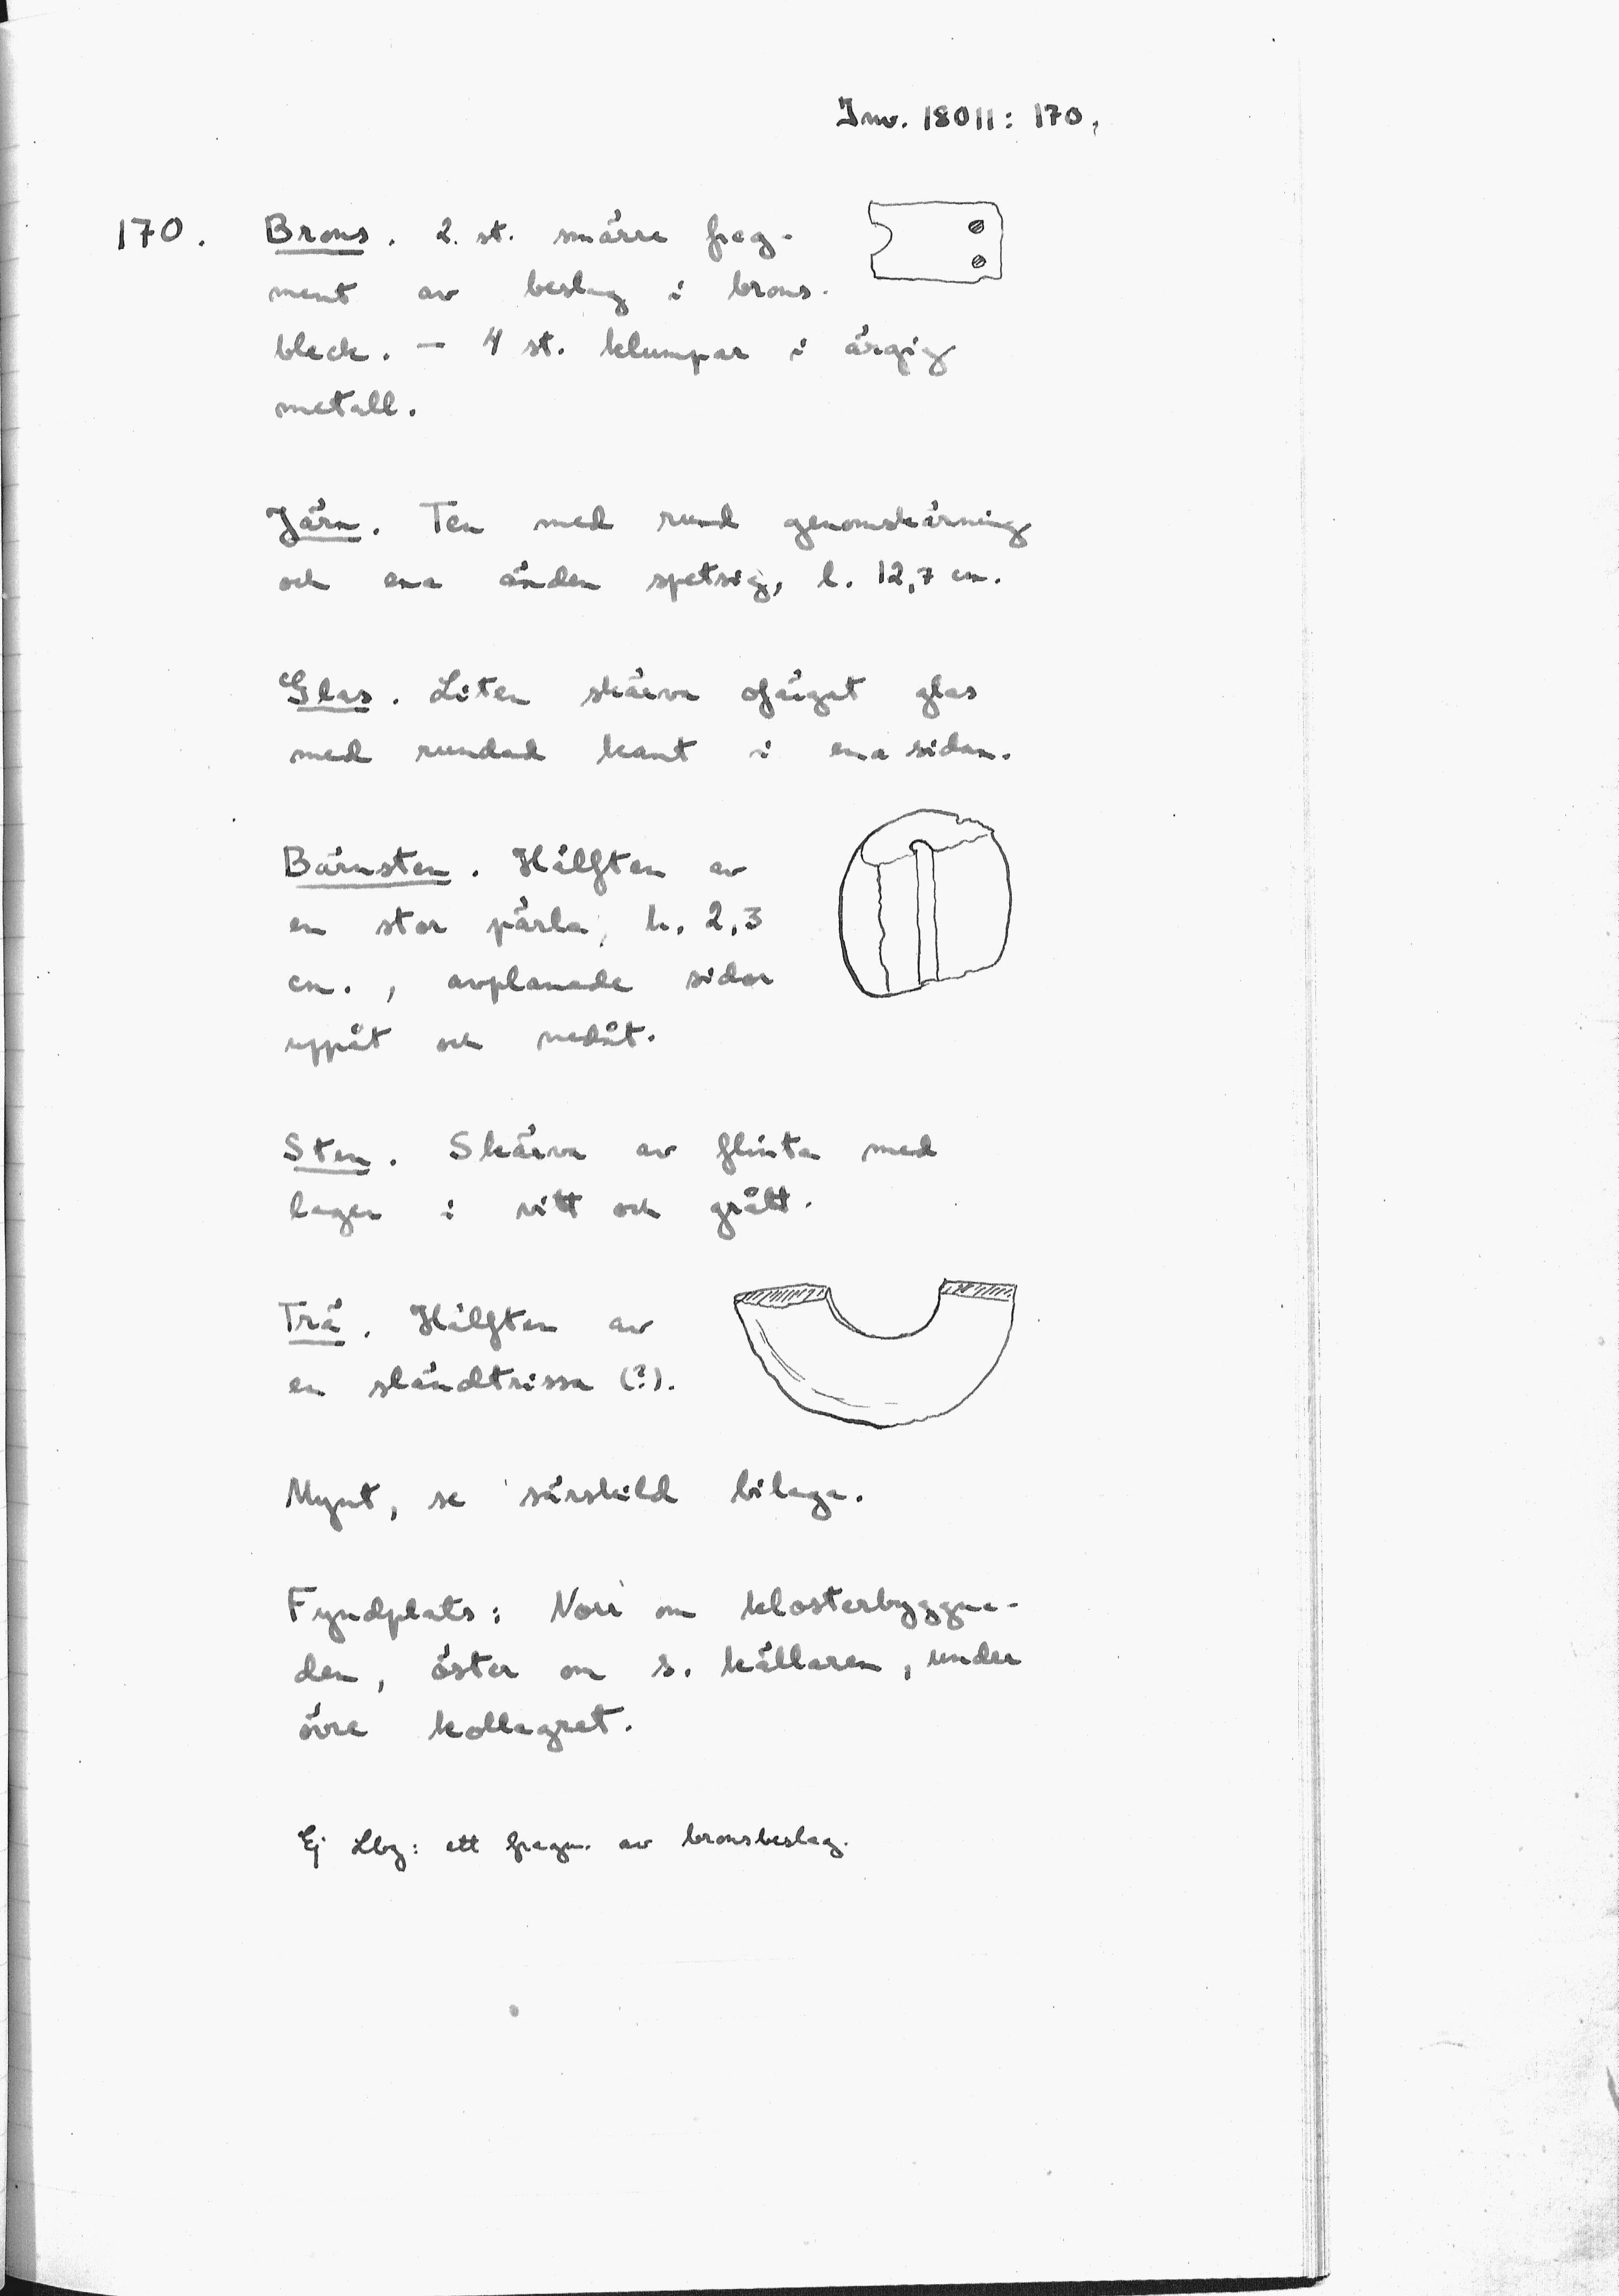 Inv. 18011: 170.
170. Brons. 2. st. smärre frag-
ment av beslag i brons-
bleck. — 4 st. klumpar i ärgig
metall.
Järn. Ten med rund genomskärning
och ena änden spetsig, l. 12,7 cm.
Glas. Liten skärva ofärgat glas
med rundad kant i ena sidan.
Bärnsten. Hälften av
en stor pärla, h. 2,3
cm., avplanade sidor
uppåt och nedåt.
Sten. Skärva av flinta med
lager i vitt och grått.
Trä. Hälften av
en sländtrissa (?).
Mynt, se särskild bilaga.
Fyndplats: Norr om klosterbyggna-
den, öster om s. källaren, under
övre kollagret.
Ej Lbg: ett fragm. av bronsbeslag.